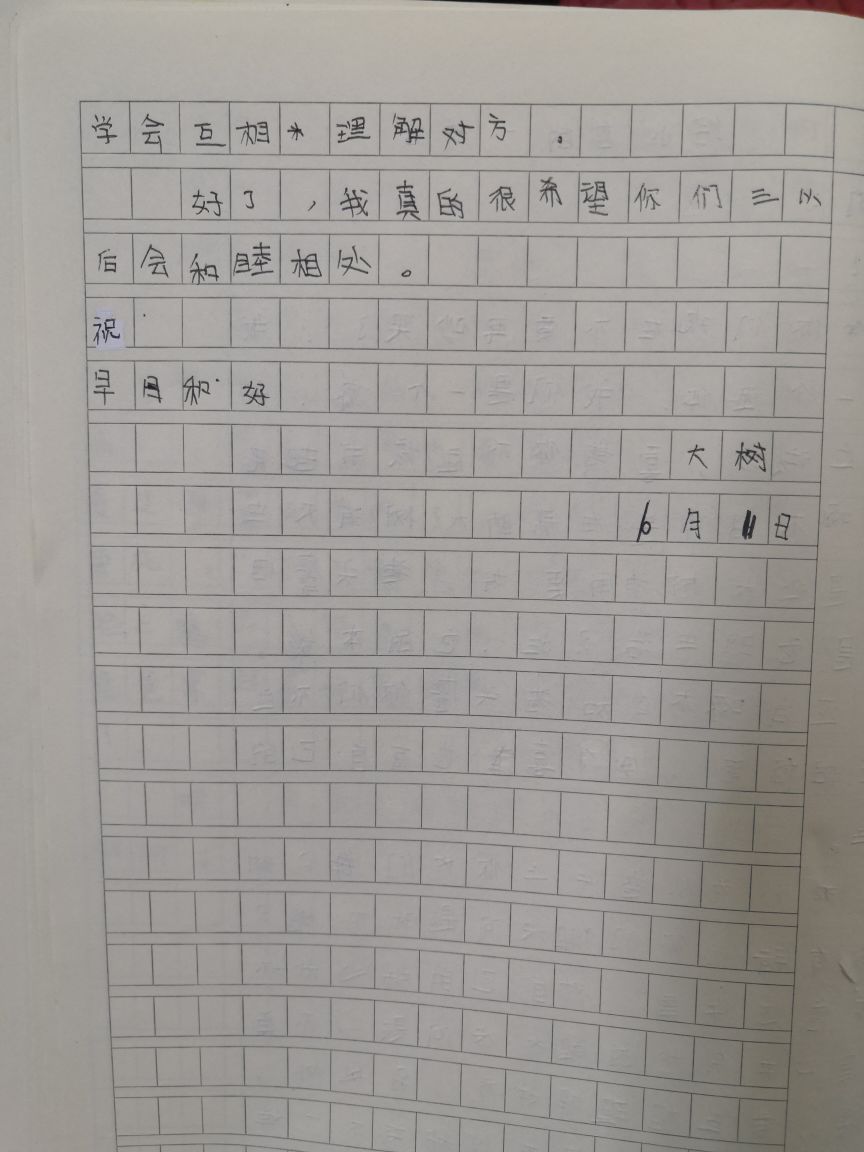 学会互相理解对方。
好了，我真的很希望你们三以
后会和睦相处。
祝
早日和好
大树
6月11日